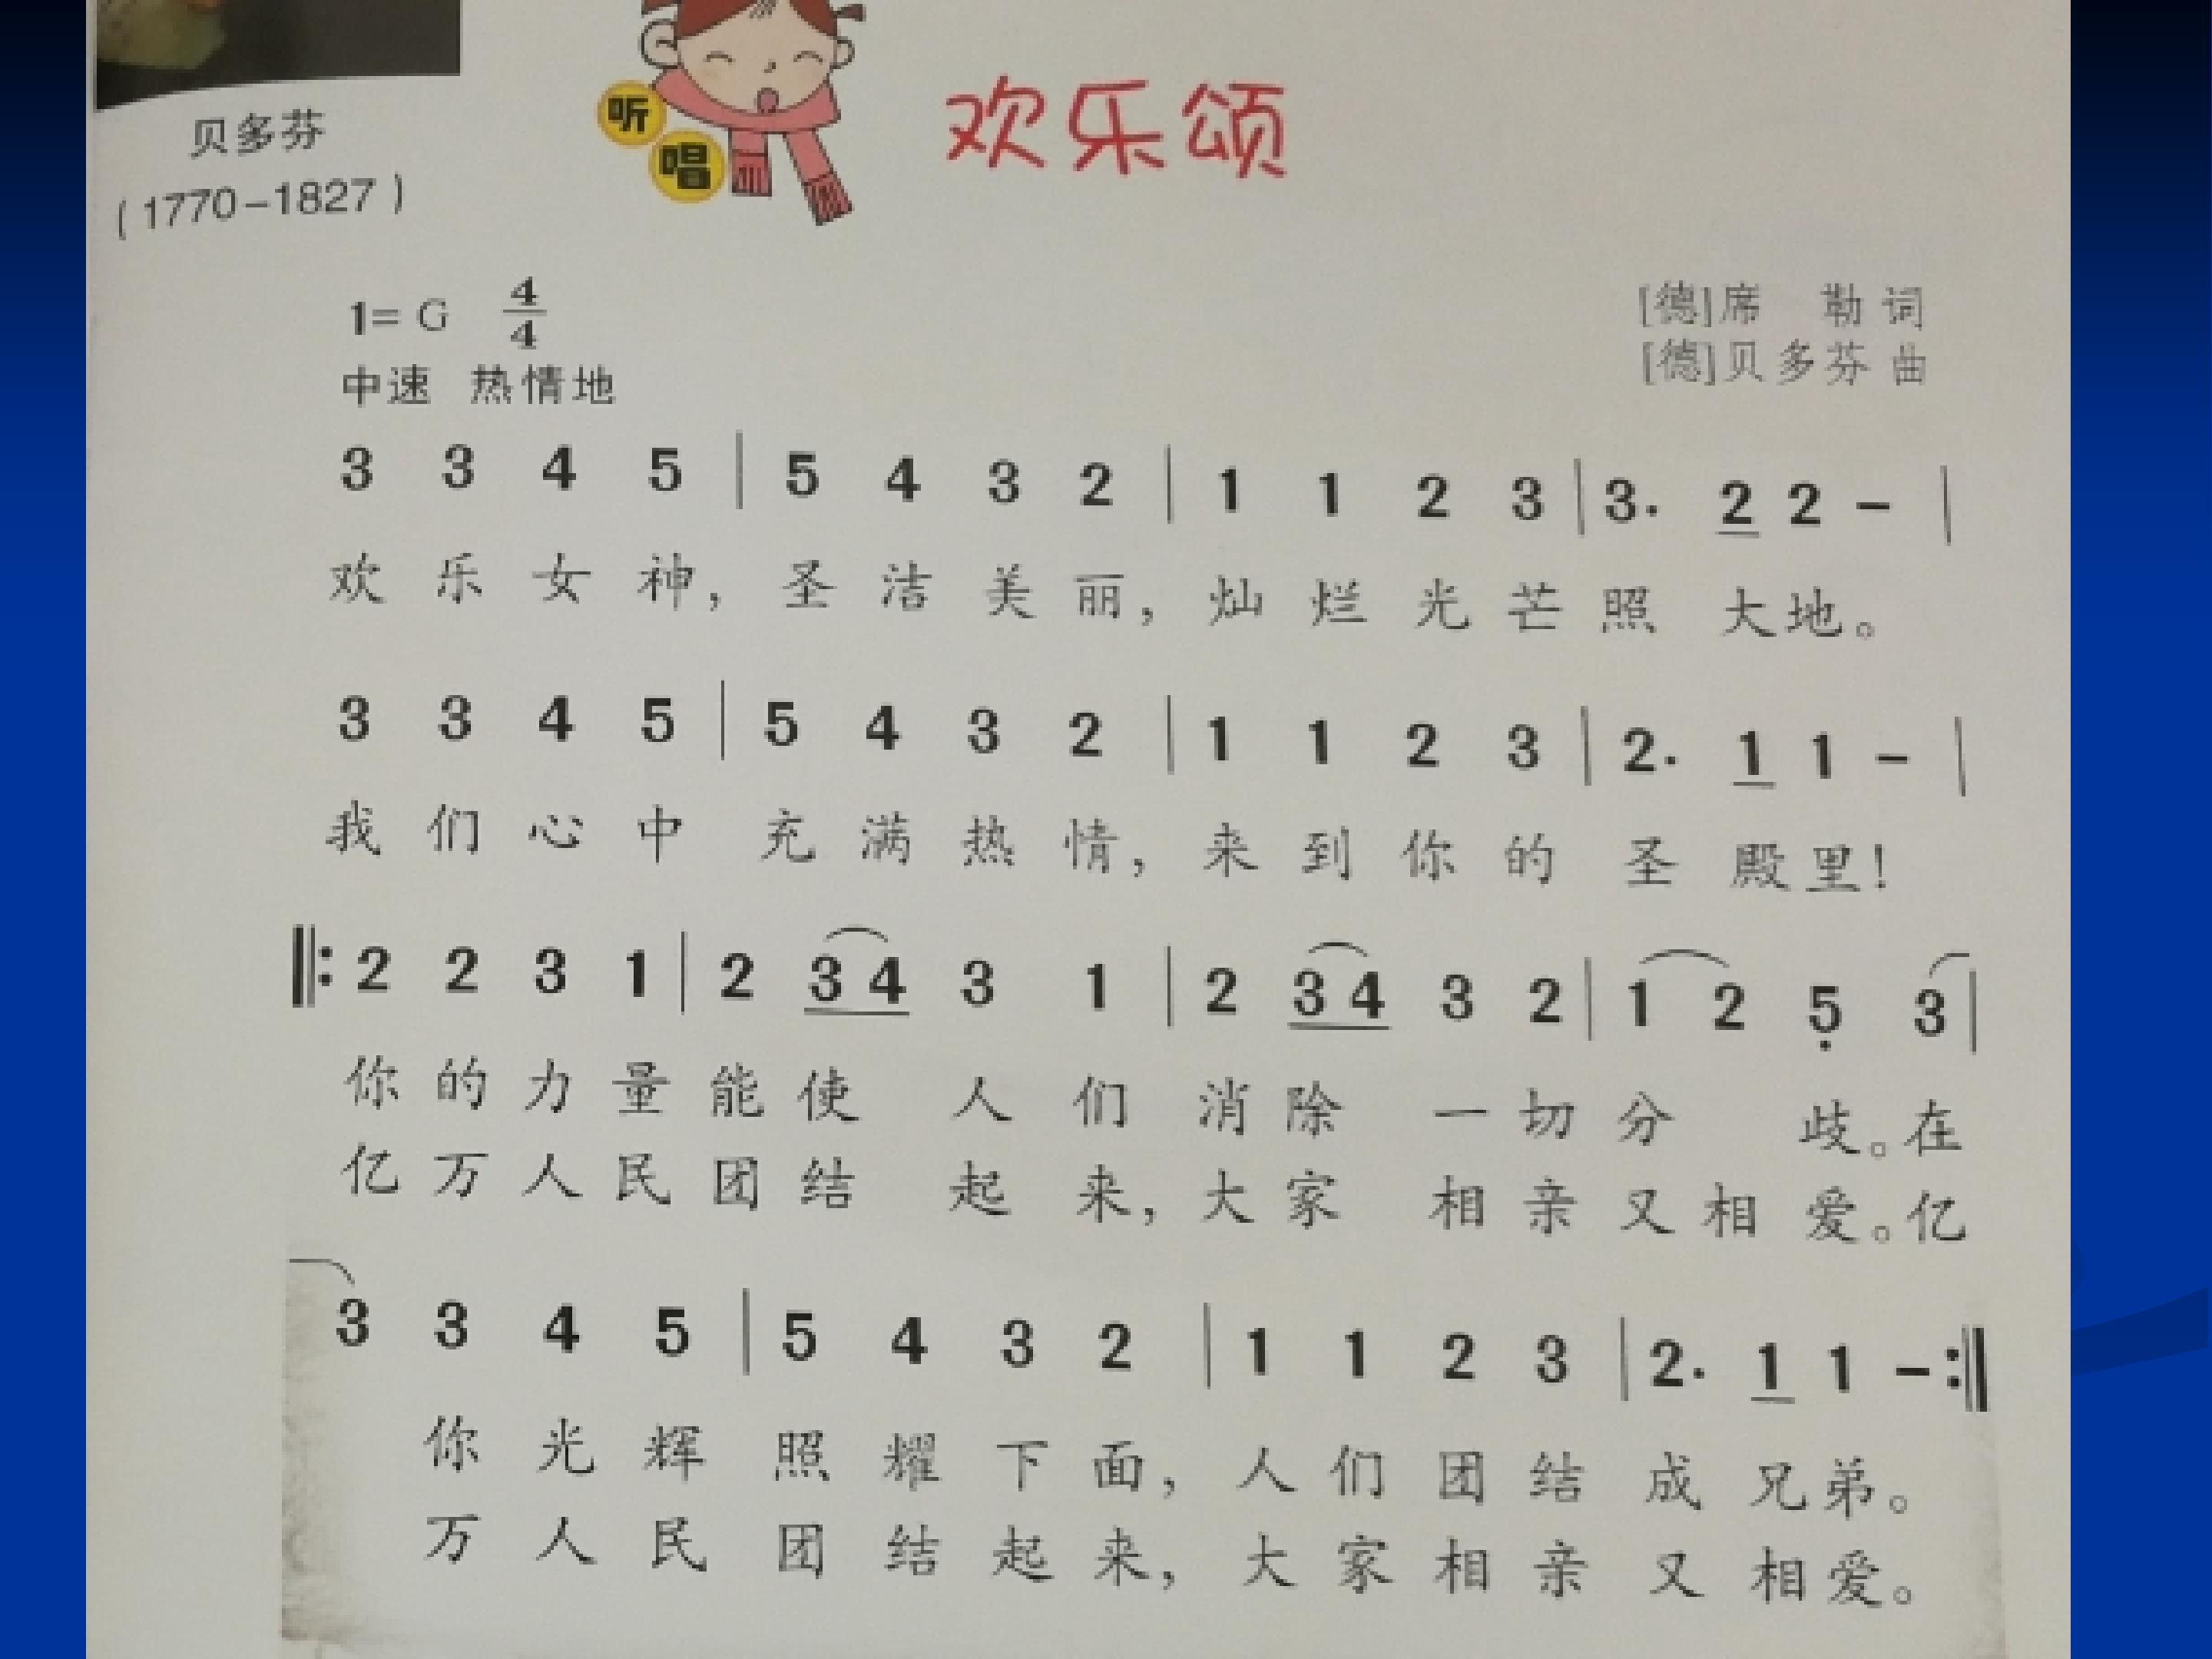 贝多芬
（1770-1827）
听
唱
欢乐颂
1= G 4/4
中速 热情地
[德]席 勒 词
[德]贝多芬 曲
3 3 4 5 | 5 4 3 2 | 1 1 2 3 | 3. 2 2 - |
欢 乐 女 神， 圣 洁 美 丽， 灿 烂 光 芒 照 大 地。
3 3 4 5 | 5 4 3 2 | 1 1 2 3 | 2. 1 1 - |
我 们 心 中 充 满 热 情， 来 到 你 的 圣 殿 里！
‖: 2 2 3 1 | 2 3 4 3 1 | 2 3 4 3 2 | 1 2 5̣ 3 |
你 的 力 量 能 使 人 们 消 除 一 切 分 歧。在
亿 万 人 民 团 结 起 来， 大 家 相 亲 又 相 爱。亿
3 3 4 5 | 5 4 3 2 | 1 1 2 3 | 2. 1 1 - :‖
你 光 辉 照 耀 下 面， 人 们 团 结 成 兄 弟。
万 人 民 团 结 起 来， 大 家 相 亲 又 相 爱。